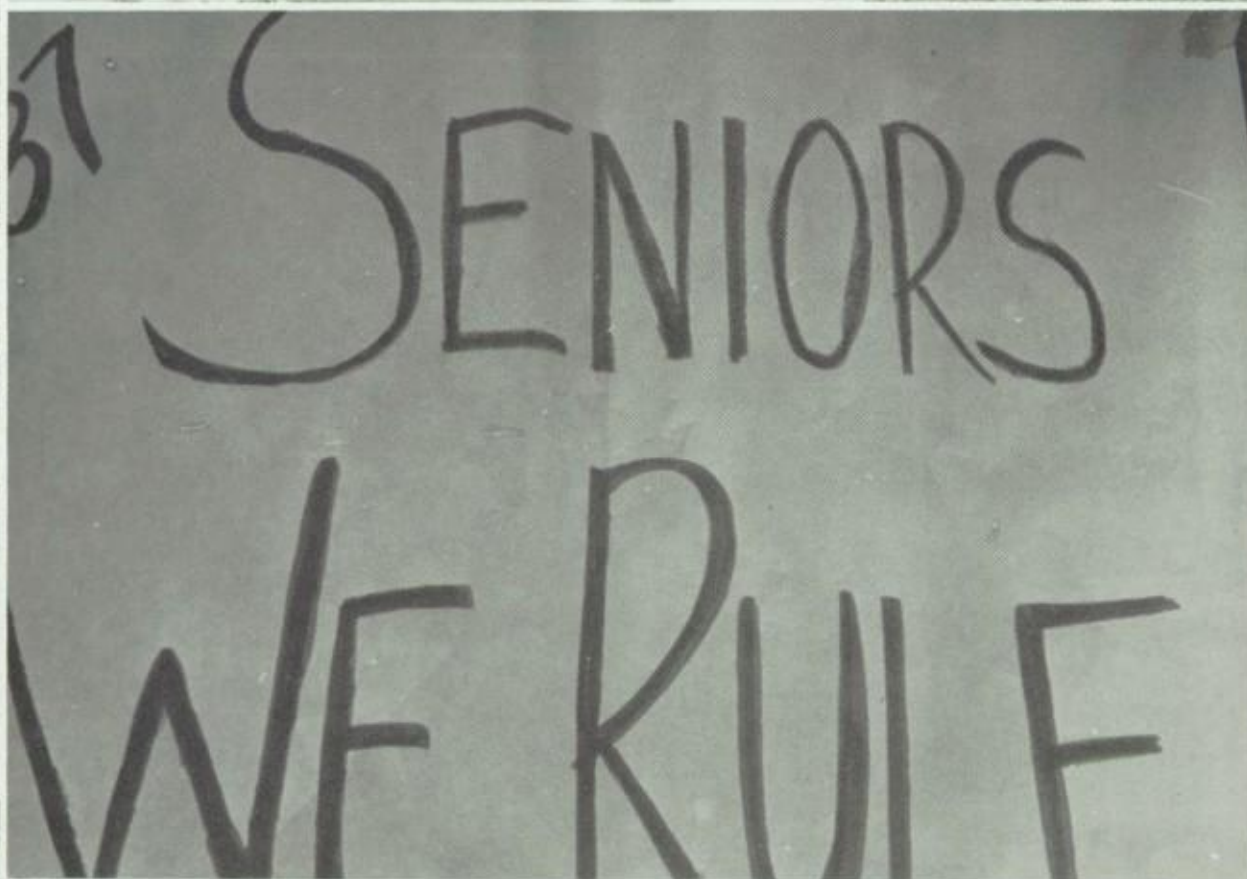 SENIORS
WE RULE